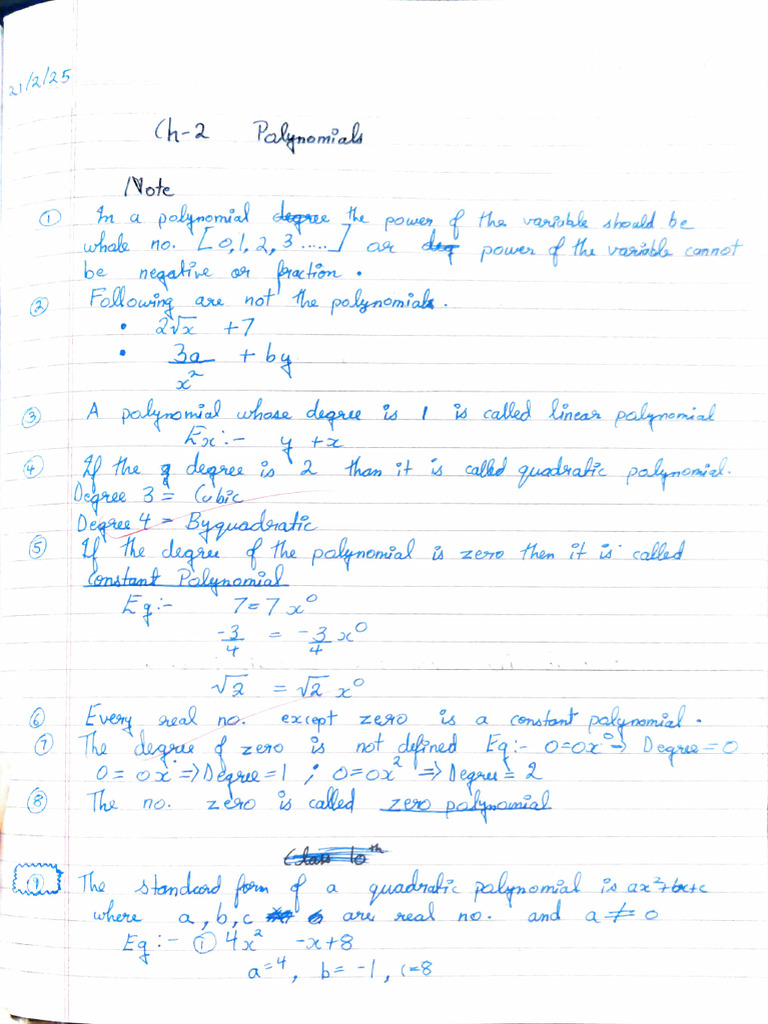 21/2/25
Ch-2 Polynomials
Note
① In a polynomial degree the power of the variable should be
whole no. [0,1,2,3.....] or deg power of the variable cannot
be negative or fraction.
② Following are not the polynomials.
• 2√x +7
• 3a/x² + by
③ A polynomial whose degree is 1 is called linear polynomial
Ex:- y +x
④ If the degree is 2 than it is called quadratic polynomial.
Degree 3 = Cubic
Degree 4 = Byquadratic
⑤ If the degree of the polynomial is zero then it is called
Constant Polynomial
Eg:- 7=7x⁰
-3/4 = -3/4 x⁰
√2 = √2 x⁰
⑥ Every real no. except zero is a constant polynomial.
⑦ The degree of zero is not defined Eg:- 0=0x⁰⇒ Degree=0
0= 0x ⇒Degree=1 ; 0=0x² ⇒Degree= 2
⑧ The no. zero is called zero polynomial
Class 10th
⑨ The standard form of a quadratic polynomial is ax²+bx+c
where a,b,c are real no. and a≠0
Eg:- ① 4x² -x+8
a=4, b=-1, c=8